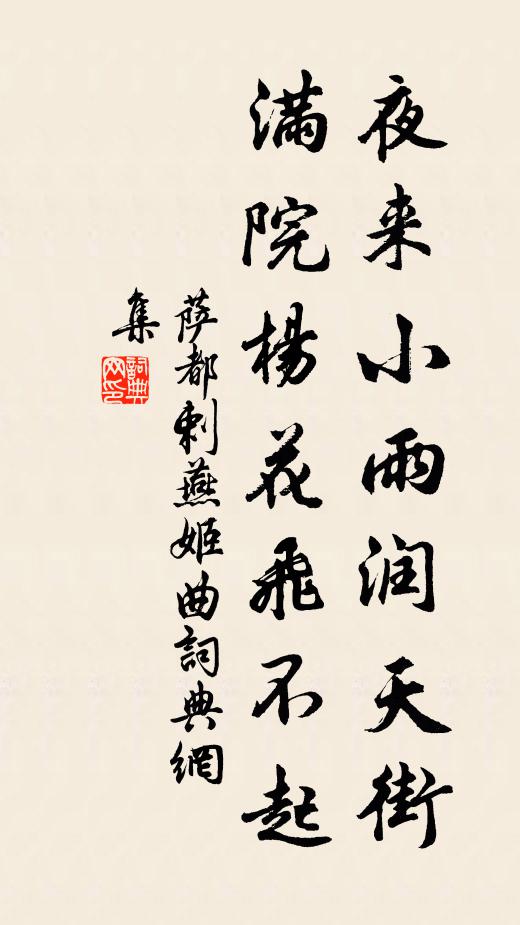 夜来小雨润天街
满院楊花飛不起
萨都剌燕姬曲詞典網
集
詞典
网印